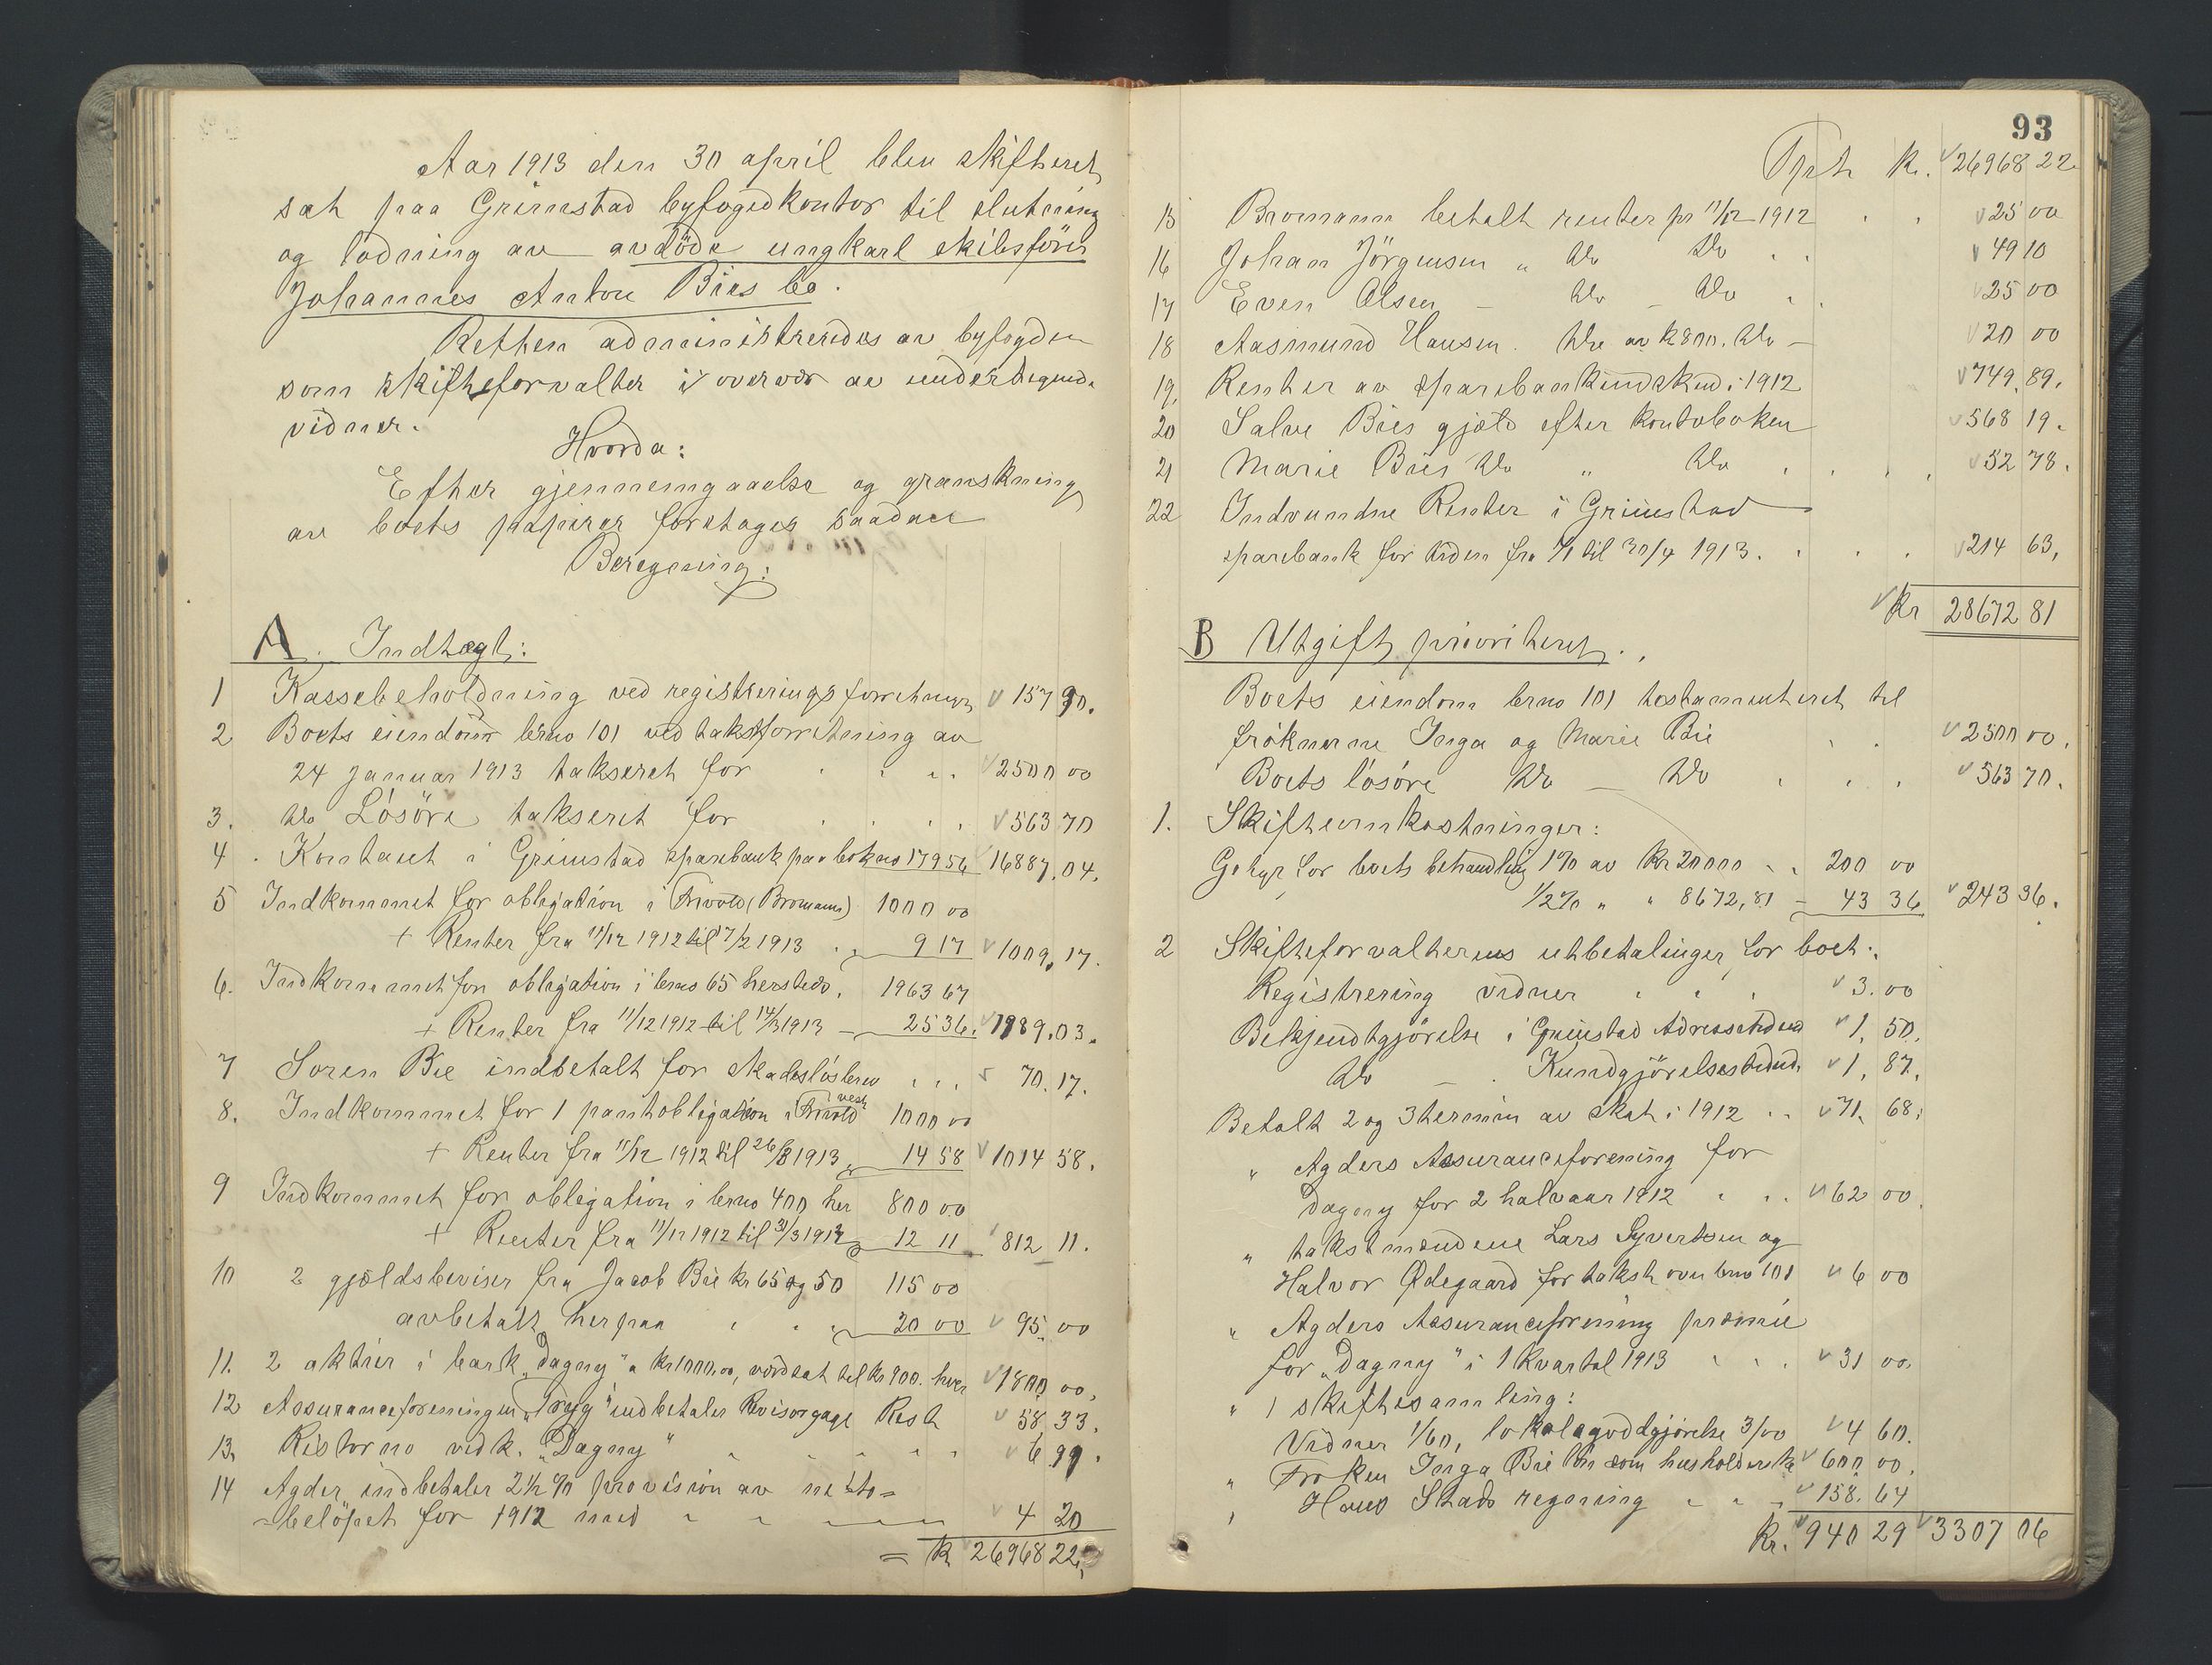 Aar 1913 den 30 april blev skifteret
sat paa Grimstad byfogedkontor til slutning
og lodning av avdöde ungkarl skibsförer
Johannes Anton Bies bo.
Retten administrertes av byfogden
som skifteforvalter i overvær av undertegnede
vidner.
Hvorda:
Efter gjennemgaaelse og granskning
av boets papirer foretoges saadan
Beregning:
A. Indtægt:
1 Kassebeholdning ved registreringsforretningen 157 90.
2 Boets eiendom brno 101 ved takstforretning av
24 januar 1913 takseret for 2500 00
3. do Lösöre takseret for 563 70
4. Kontant i Grimstad sparebank paa bok no 17956 16887.04.
5 Indkommet for obligation i Frivold (Bromann) 1000 00
+ Renter fra 11/12 1912 til 17/2 1913 9 17 1009.17.
6. Indkommet for obligation i brno 65 hersteds. 1963 67
+ Renter fra 11/12 1912 til 14/3 1913 – 25 36. 1989.03.
7 Soren Bie indbetalt for skadeslösbrev 70.17.
8. Indkommet for 1 pantobligation i Frivold vest 1000 00
+ Renter fra 11/12 1912 til 26/3 1913 14 58 1014 58.
9 Indkommet for obligation i brno 400 her 800 00
+ Renter fra 11/12 1912 til 31/3 1913 12 11 812 11.
10 2 gjældsbeviser fra Jacob Bie kr 65 og 50 115 00
avbetalt herpaa 20 00 95.00
11. 2 aktier i bark "Dagny" a kr 1000.00, værdsat til kr 900. hver 1800 00.
12 Assuranceforeningen "Tryg" indbetaler Revisorgage Rest 58 33.
13. Ristorno vedk. "Dagny" 6 99.
14 Agder indbetaler 2 1/2 % provision av netto=
=belöpet for 1912 med 4 20
= Kr 26968 22,
93
Tprt Kr. 26968 22
15 Bromann betalt renter pr 11/12 1912 25 00
16 Johan Jörgensen " do do 49 10
17 Even Olsen – do – do 25 00
18 Aasmund Hansen. do av k 800. do – 20 00
19. Renter av sparebankindskud i 1912 749.89.
20 Salve Bies gjæld efter kontoboken 568 19.
21 Marie Bies do " do 52 78.
22 Indvundne Renter i Grimstad
sparebank for tiden fra 1/1 til 30/4 1913. 214 63,
Kr 28672 81
B Utgift prioriteret.
Boets eiendom brno 101 testamenteret til
fröknerne Inga og Marie Bie 2500 00.
Boets lösöre do – do 563 70.
1. Skifteomkostninger:
Gebyr for boets behandling 1% av Kr 20000 200 00
1/2 % " " 8672,81 – 43 36 243 36.
2 Skifteforvalterens utbetalinger for boet:
Registrering vidner 3.00
Bekjendtgjörelse i Grimstad Adressetidende 1, 50.
do – Kundgjörelsestidend. 1, 87.
Betalt 2 og 3 termin av skat i 1912 71. 68.
" Agders Assuranceforening for
Dagny for 2 halvaar 1912 62 00.
" takstmændene Lars Syvertsen og
Halvor Ødegaard for takst over brno 101 6 00
" Agders Assuranceforening præmie
for "Dagny" i 1 kvartal 1913 31 00.
" 1 skiftesamling:
Vidner 1/60, lokalegodtgjörelse 3/00 4 60.
" Fröken Inga Bie lön som husholderske 600 00.
, Hans Stads regning 158. 64
Kr. 940 29 3307 06